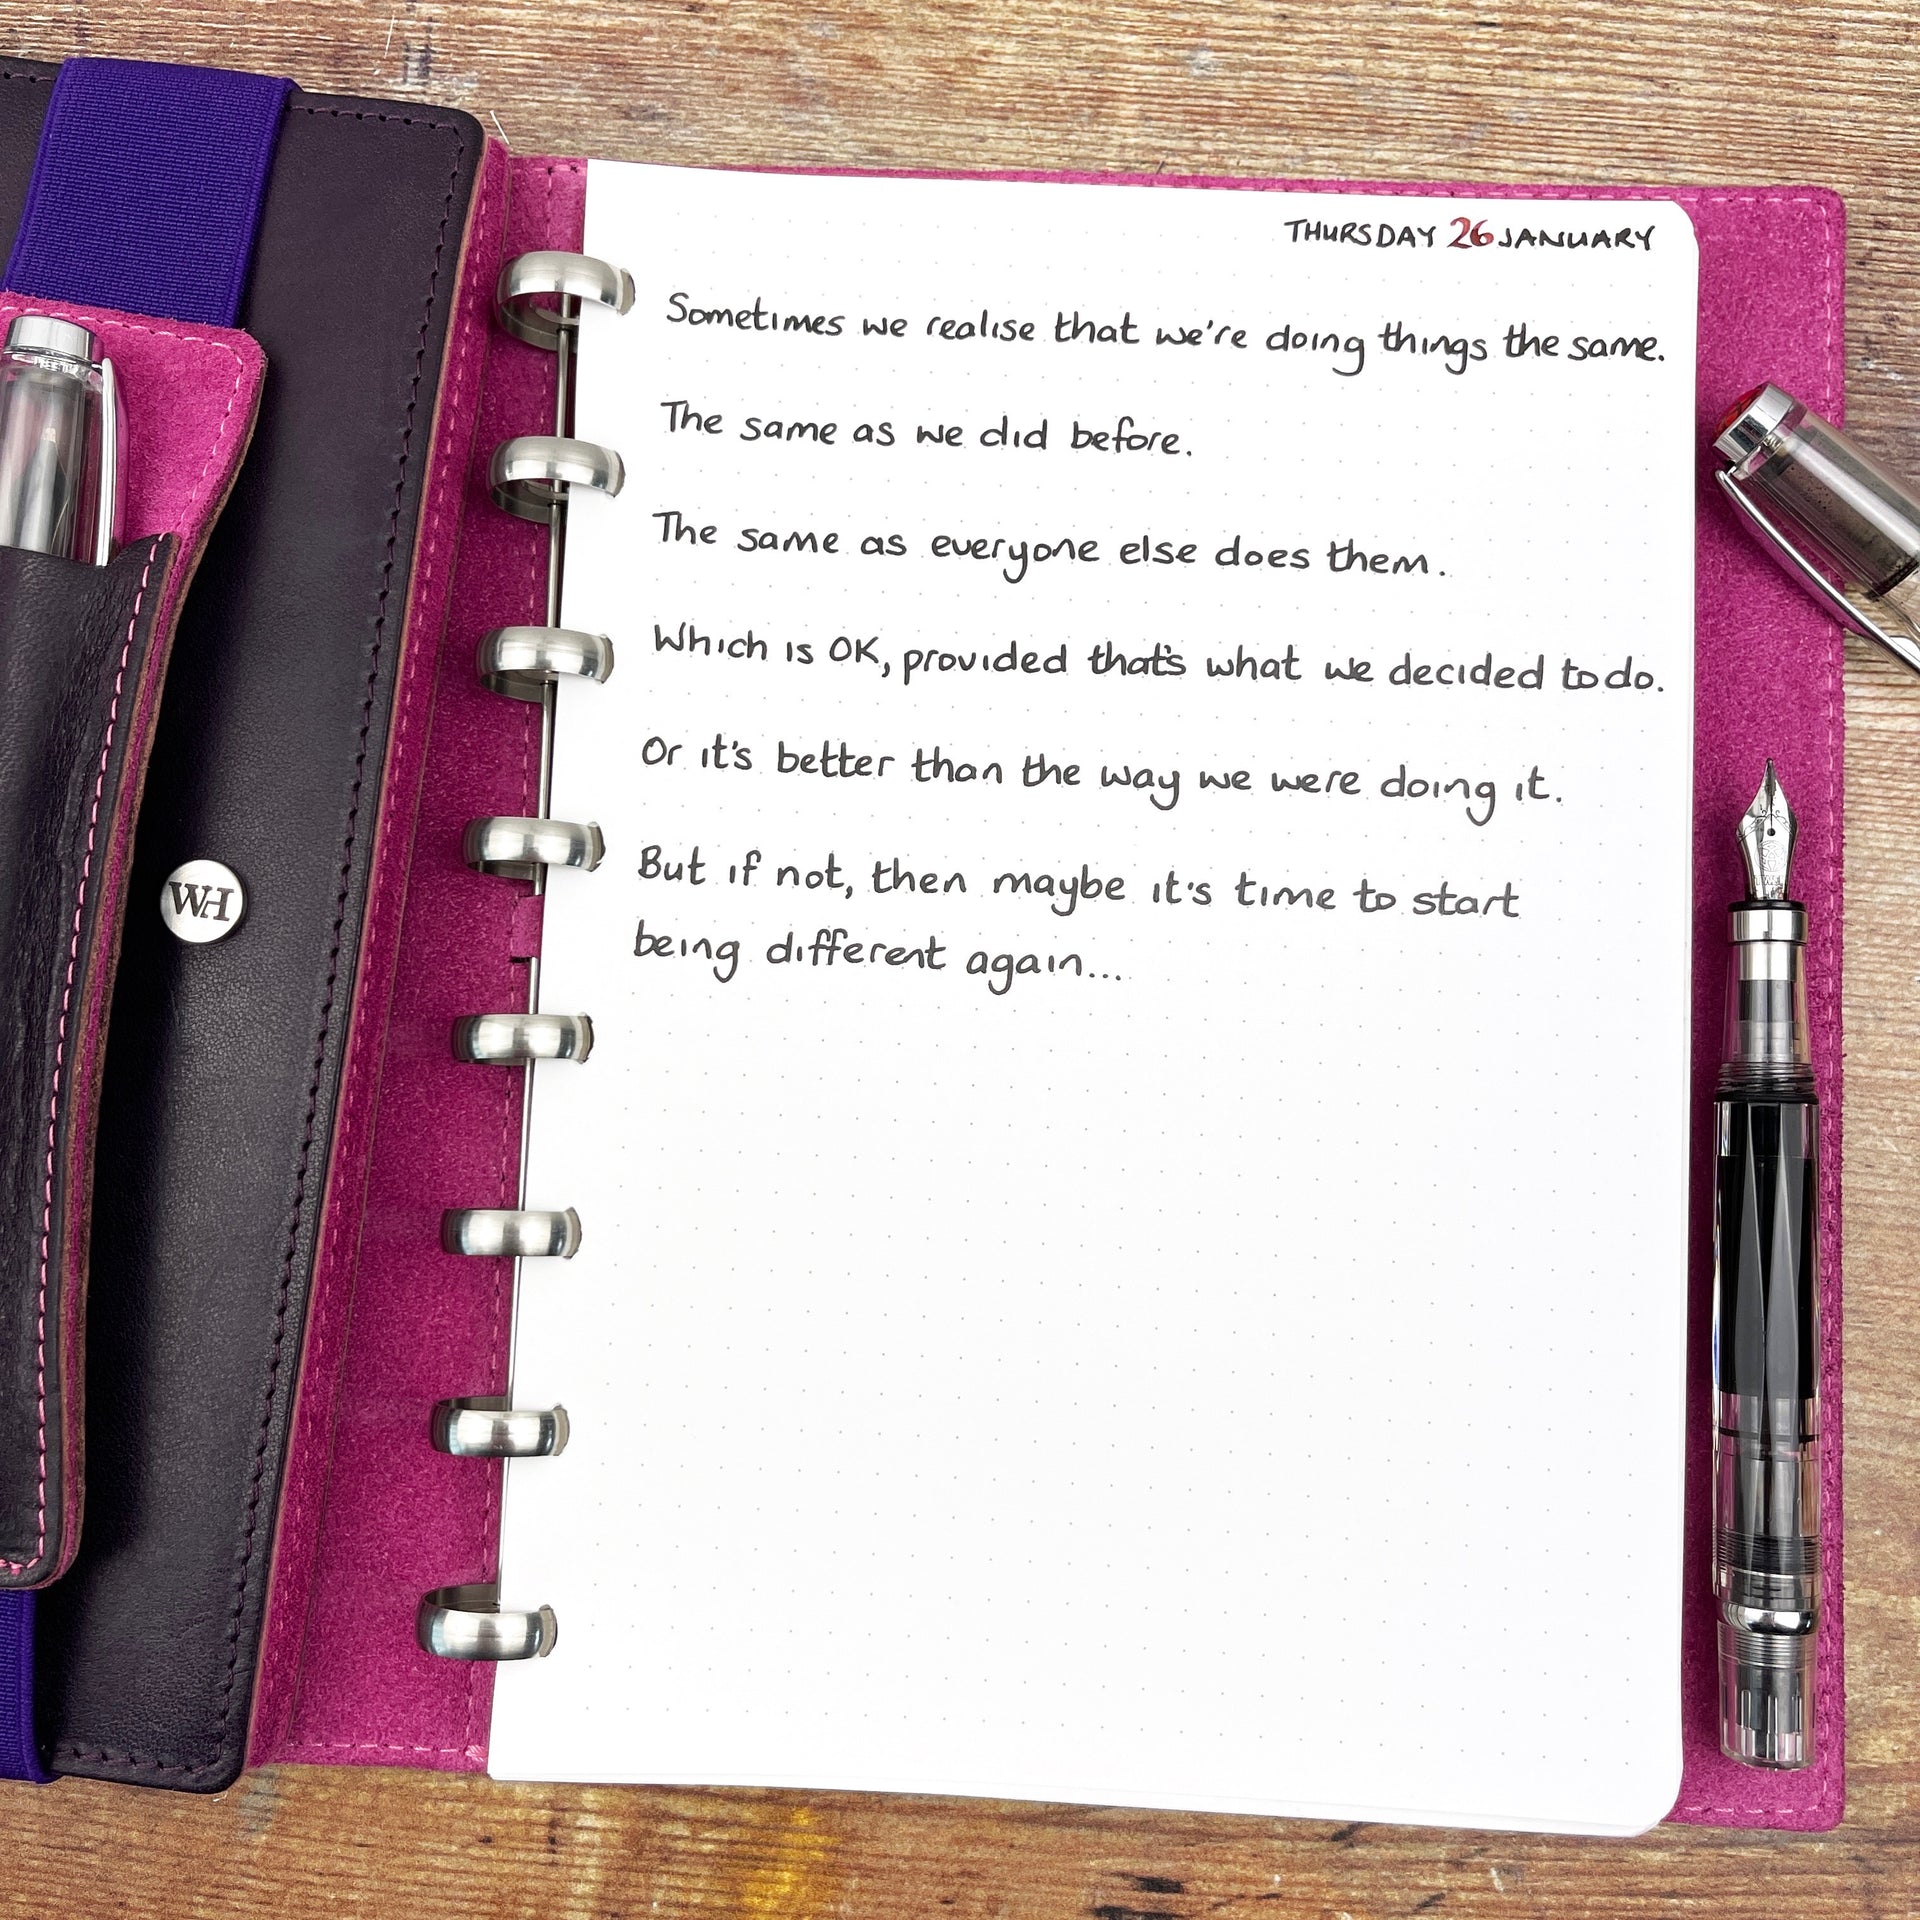 THURSDAY 26 JANUARY
Sometimes we realise that we're doing things the same.
The same as we did before.
The same as everyone else does them.
Which is OK, provided that's what we decided to do.
Or it's better than the way we were doing it.
But if not, then maybe it's time to start
being different again...
WH